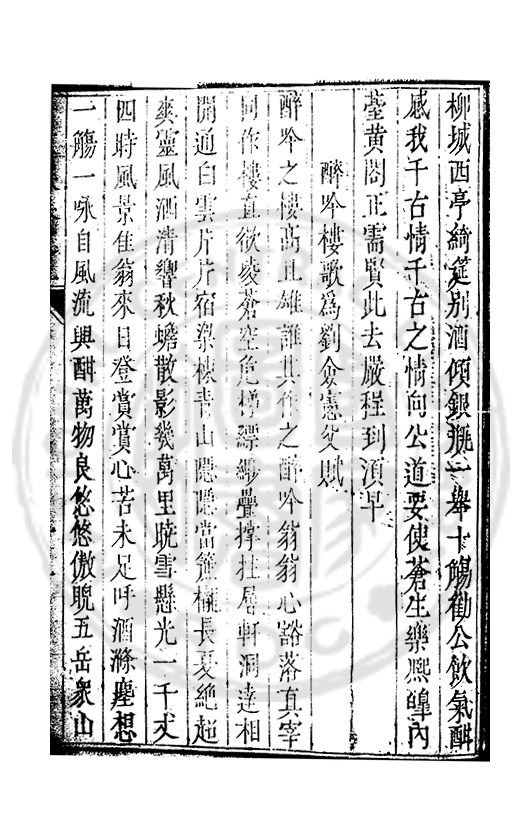 柳城西亭綺筵別酒傾銀瓶一舉十觴勸公飲氣酣
感我千古情千古之情向公道要使蒼生樂熙皥內
臺黃閣正需賢此去嚴程到須早
醉吟樓歌為劉僉憲父賦
醉吟之樓高且雄誰其作之醉吟翁翁心豁落真宰
同作樓直欲凌蒼空危梯縹緲疊撐拄層軒洞達相
開通白雲片片宿梁棟青山隱隱當簾櫳長夏絕超
爽靈風洒清響秋蟾散影幾萬里曉雪懸光一千丈
四時風景佳翁來日登賞賞心苦未足呼酒滌塵想
一觴一咏自風流興酣萬物良悠悠傲睨五岳衆山